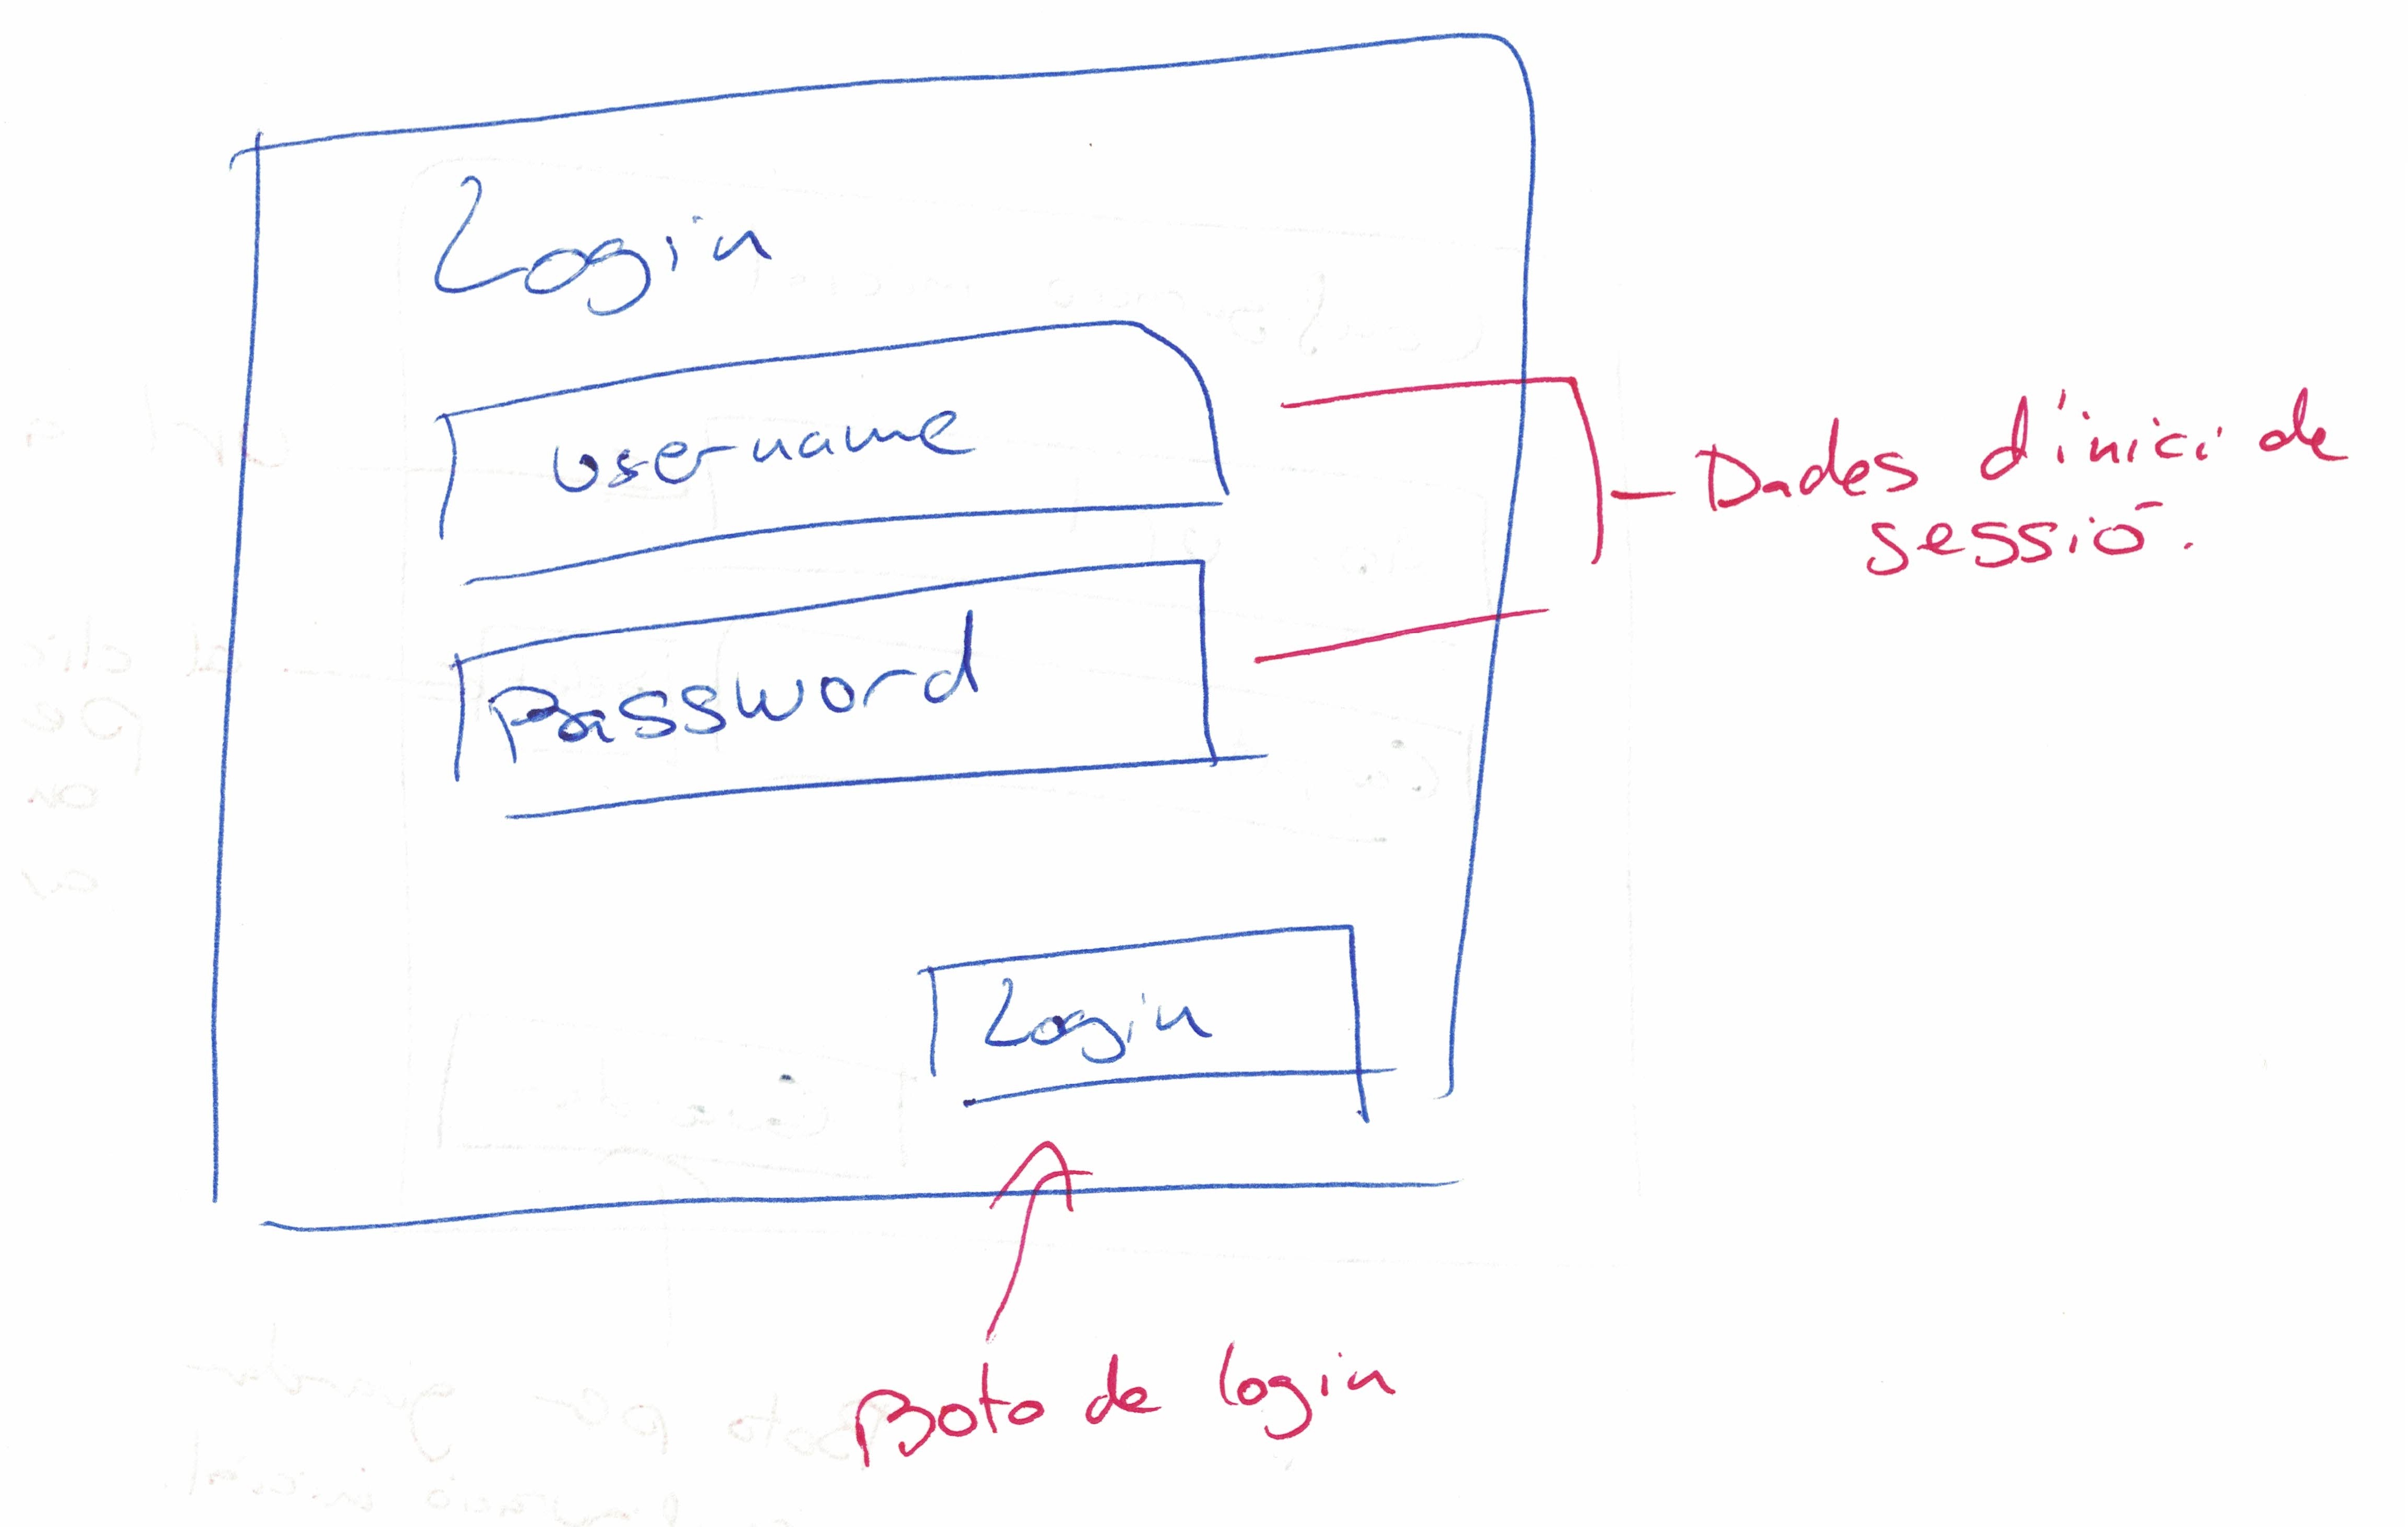 Login
Username
Password
Login
Dades d'inici de
sessió.
Boto de login